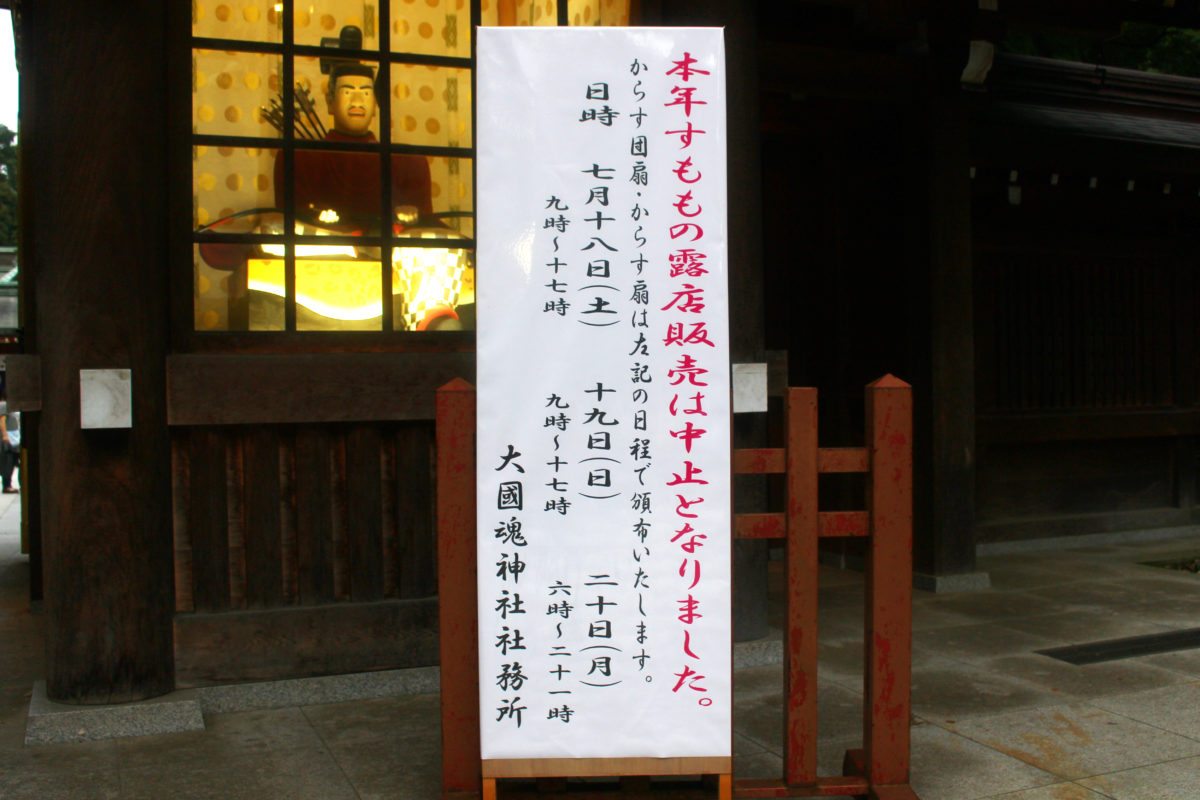 本年すももの露店販売は中止となりました。
からす団扇・からす扇は左記の日程で頒布いたします。
日時 七月十八日(土) 十九日(日) 二十日(月)
九時～十七時 九時～十七時 六時～二十一時
大國魂神社社務所